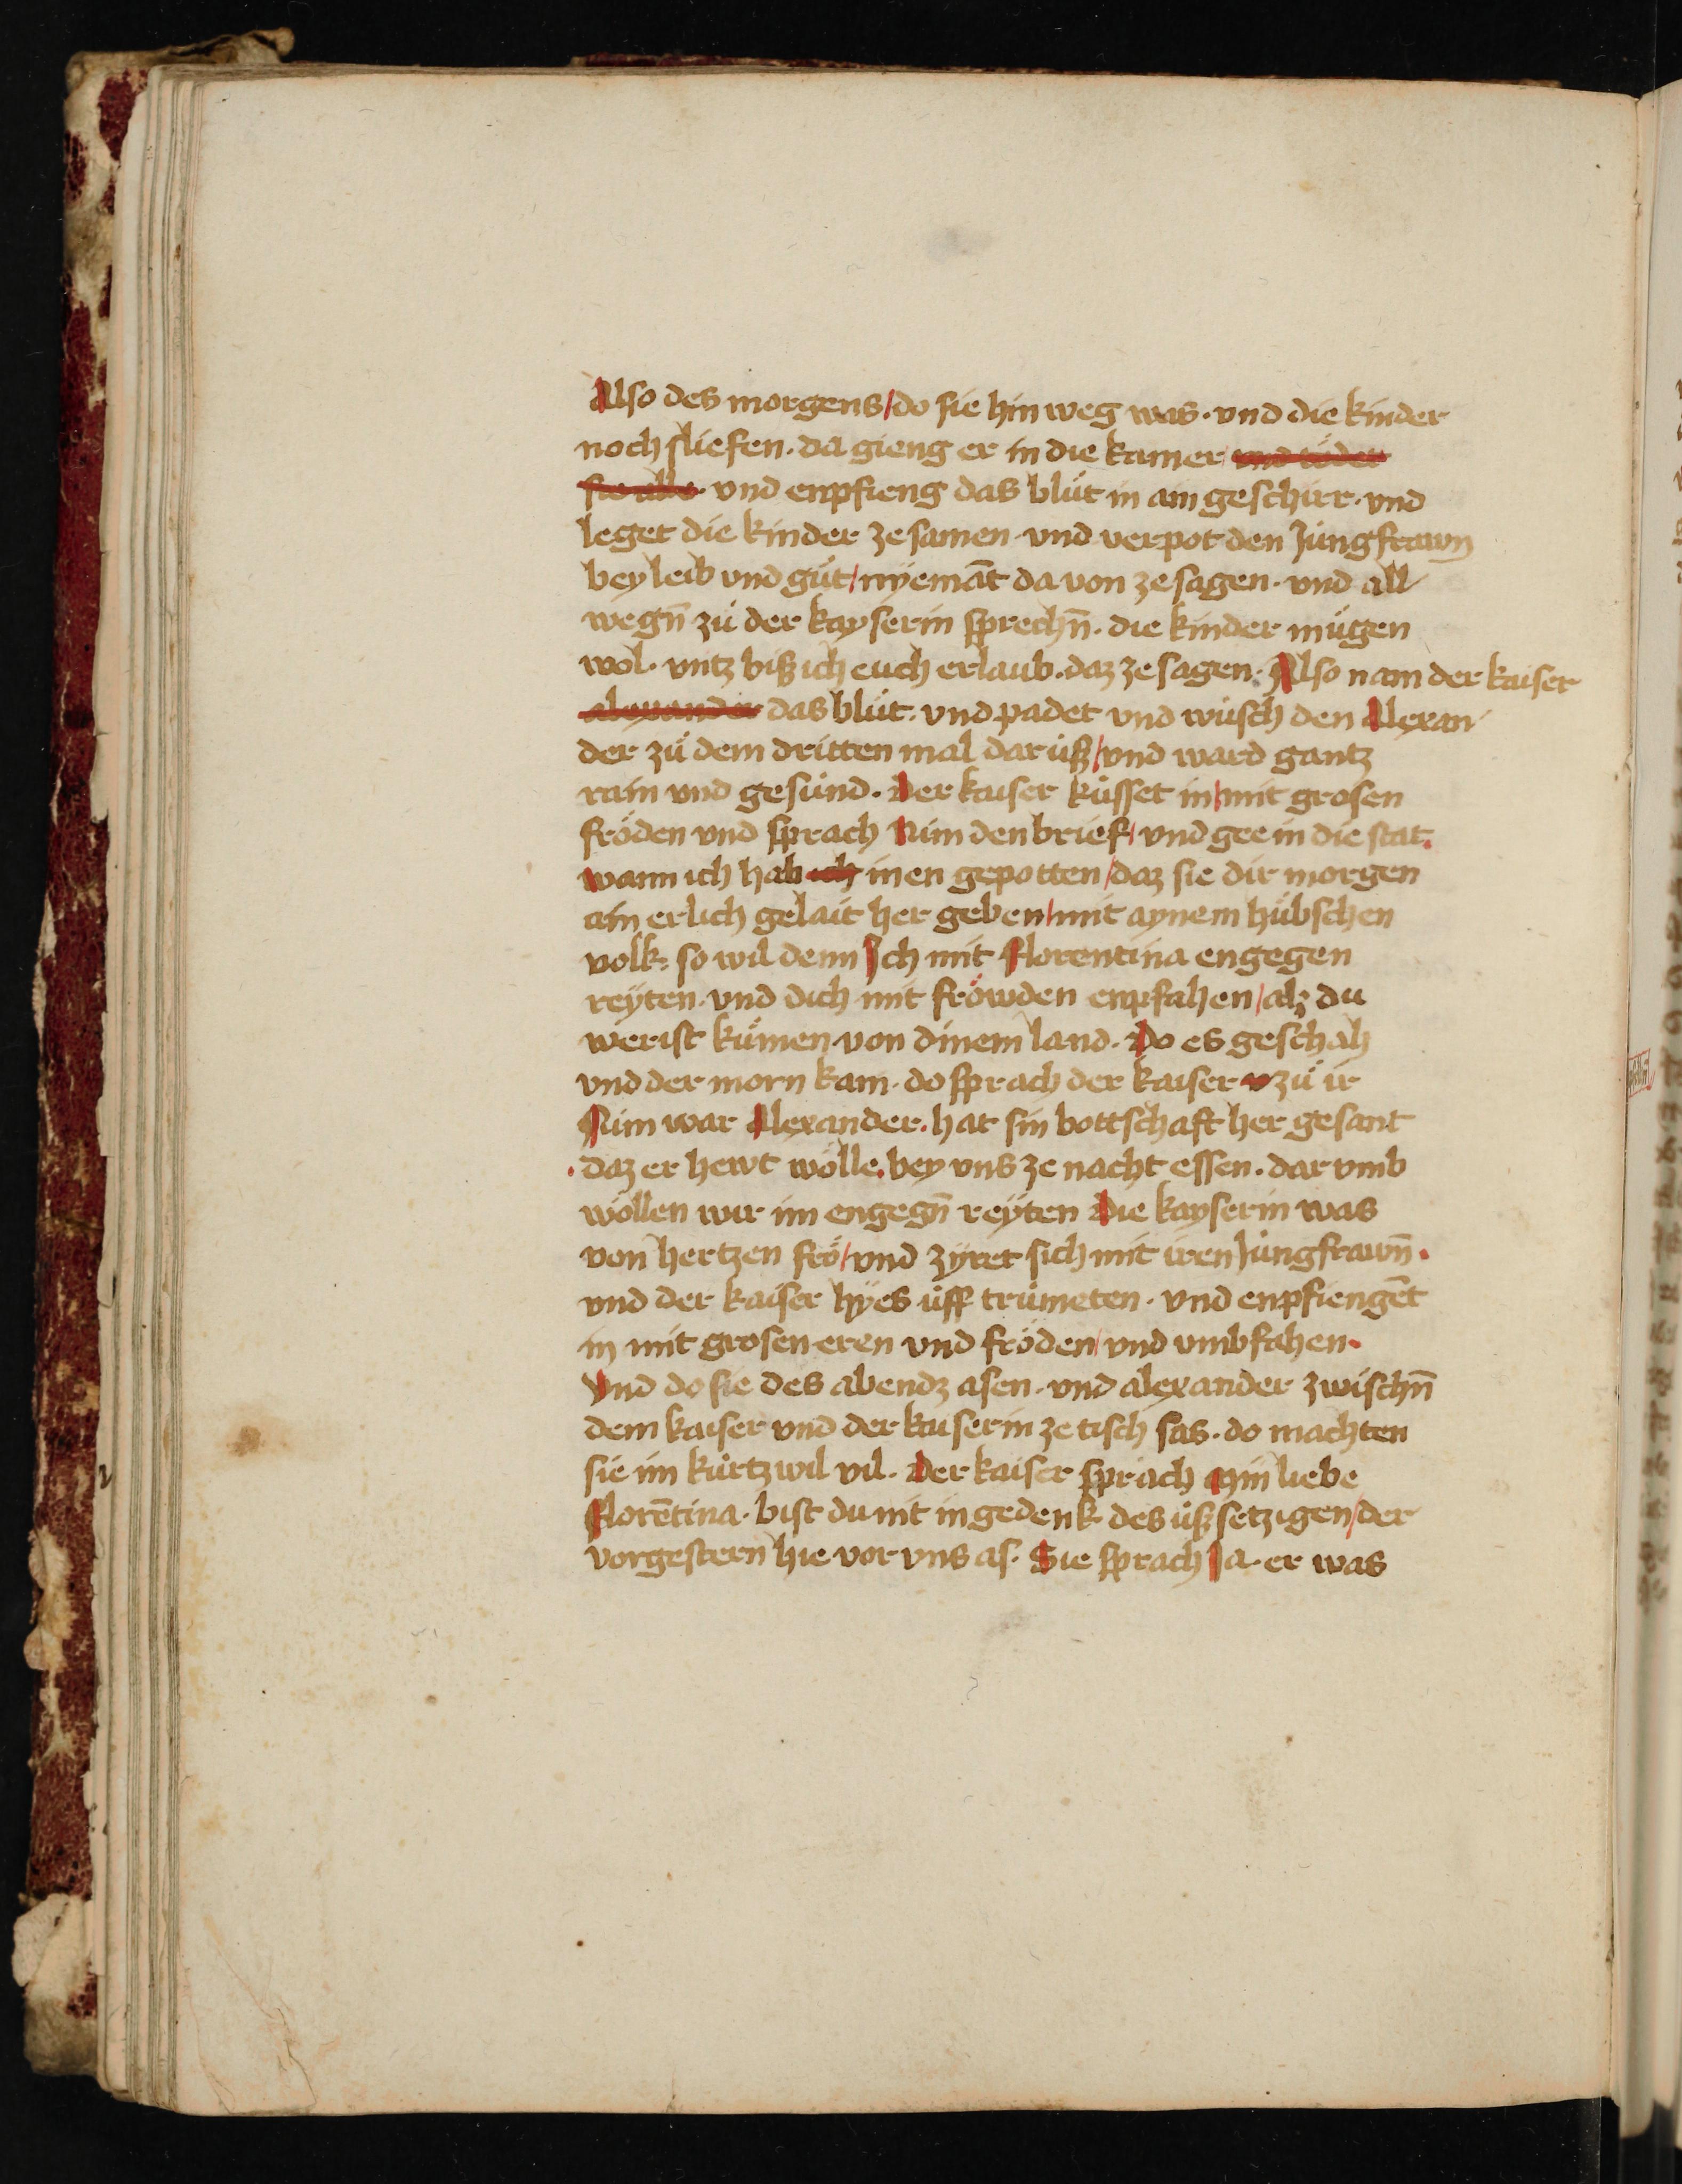 Also des morgens/do sie hin weg was· vnd die kinder
noch sliefen· da gieng er in die kamer vnd tödet
sie alle vnd enpfieng das blüt in ain geschirr· vnd
leget die kinder ze samen vnd verpot den Jüngfrawn
bey leib vnd güt/nÿemāt da von ze sagen· vnd all
wegn̄ zü der kayserin sprechn̄· die kinder mügen
wol· vntz biß ich euch erlaub· daz ze sagen· Also nam der kaiser
alexander das blüt· vnd padet vnd wüsch den Alexan
der zü dem dritten mal dar üß/vnd ward gantz
rain vnd gesünd· Der kaiser küsset in/mit grosen
fröden vnd sprach Nim den brief/ vnd gee in die stat.
wann ich hab ich inen gepotten/daz sie dir morgen
ain erlich gelait her geben/mit aynem hübschen
volk· so wil denn Ich mit Florentina engegen
reÿten· vnd dich mit fröwden enpfahen/alz du
werist kümen von dinem land· Do es geschah
vnd der morn kam· do sprach der kaiser v zü ir
Nim war Alexander. hat sin bottschaft her gesant
.daz er hewt wölle.bey vns ze nacht essen· dar vmb
wöllen wir im engegn̄ reÿten Die kayserin was
von hertzen frö/vnd zÿret sich mit iren Jüngfrawn̄.
vnd der kaiser hÿes üff trümeten· vnd enpfiengēt
in mit grosen eren vnd fröden/vnd vmbfahen.
Vnd do sie des abendz asen· vnd alexander zwischn̄
dem kaiser vnd der kaiserin ze tisch sas· do machten
sie im kürtzwil vil· Der kaiser sprach Min liebe
Florētina· bist du nit in gedenk des üßsetzigen/der
vorgestern hie vor vns as· Sie sprach Ja· er was